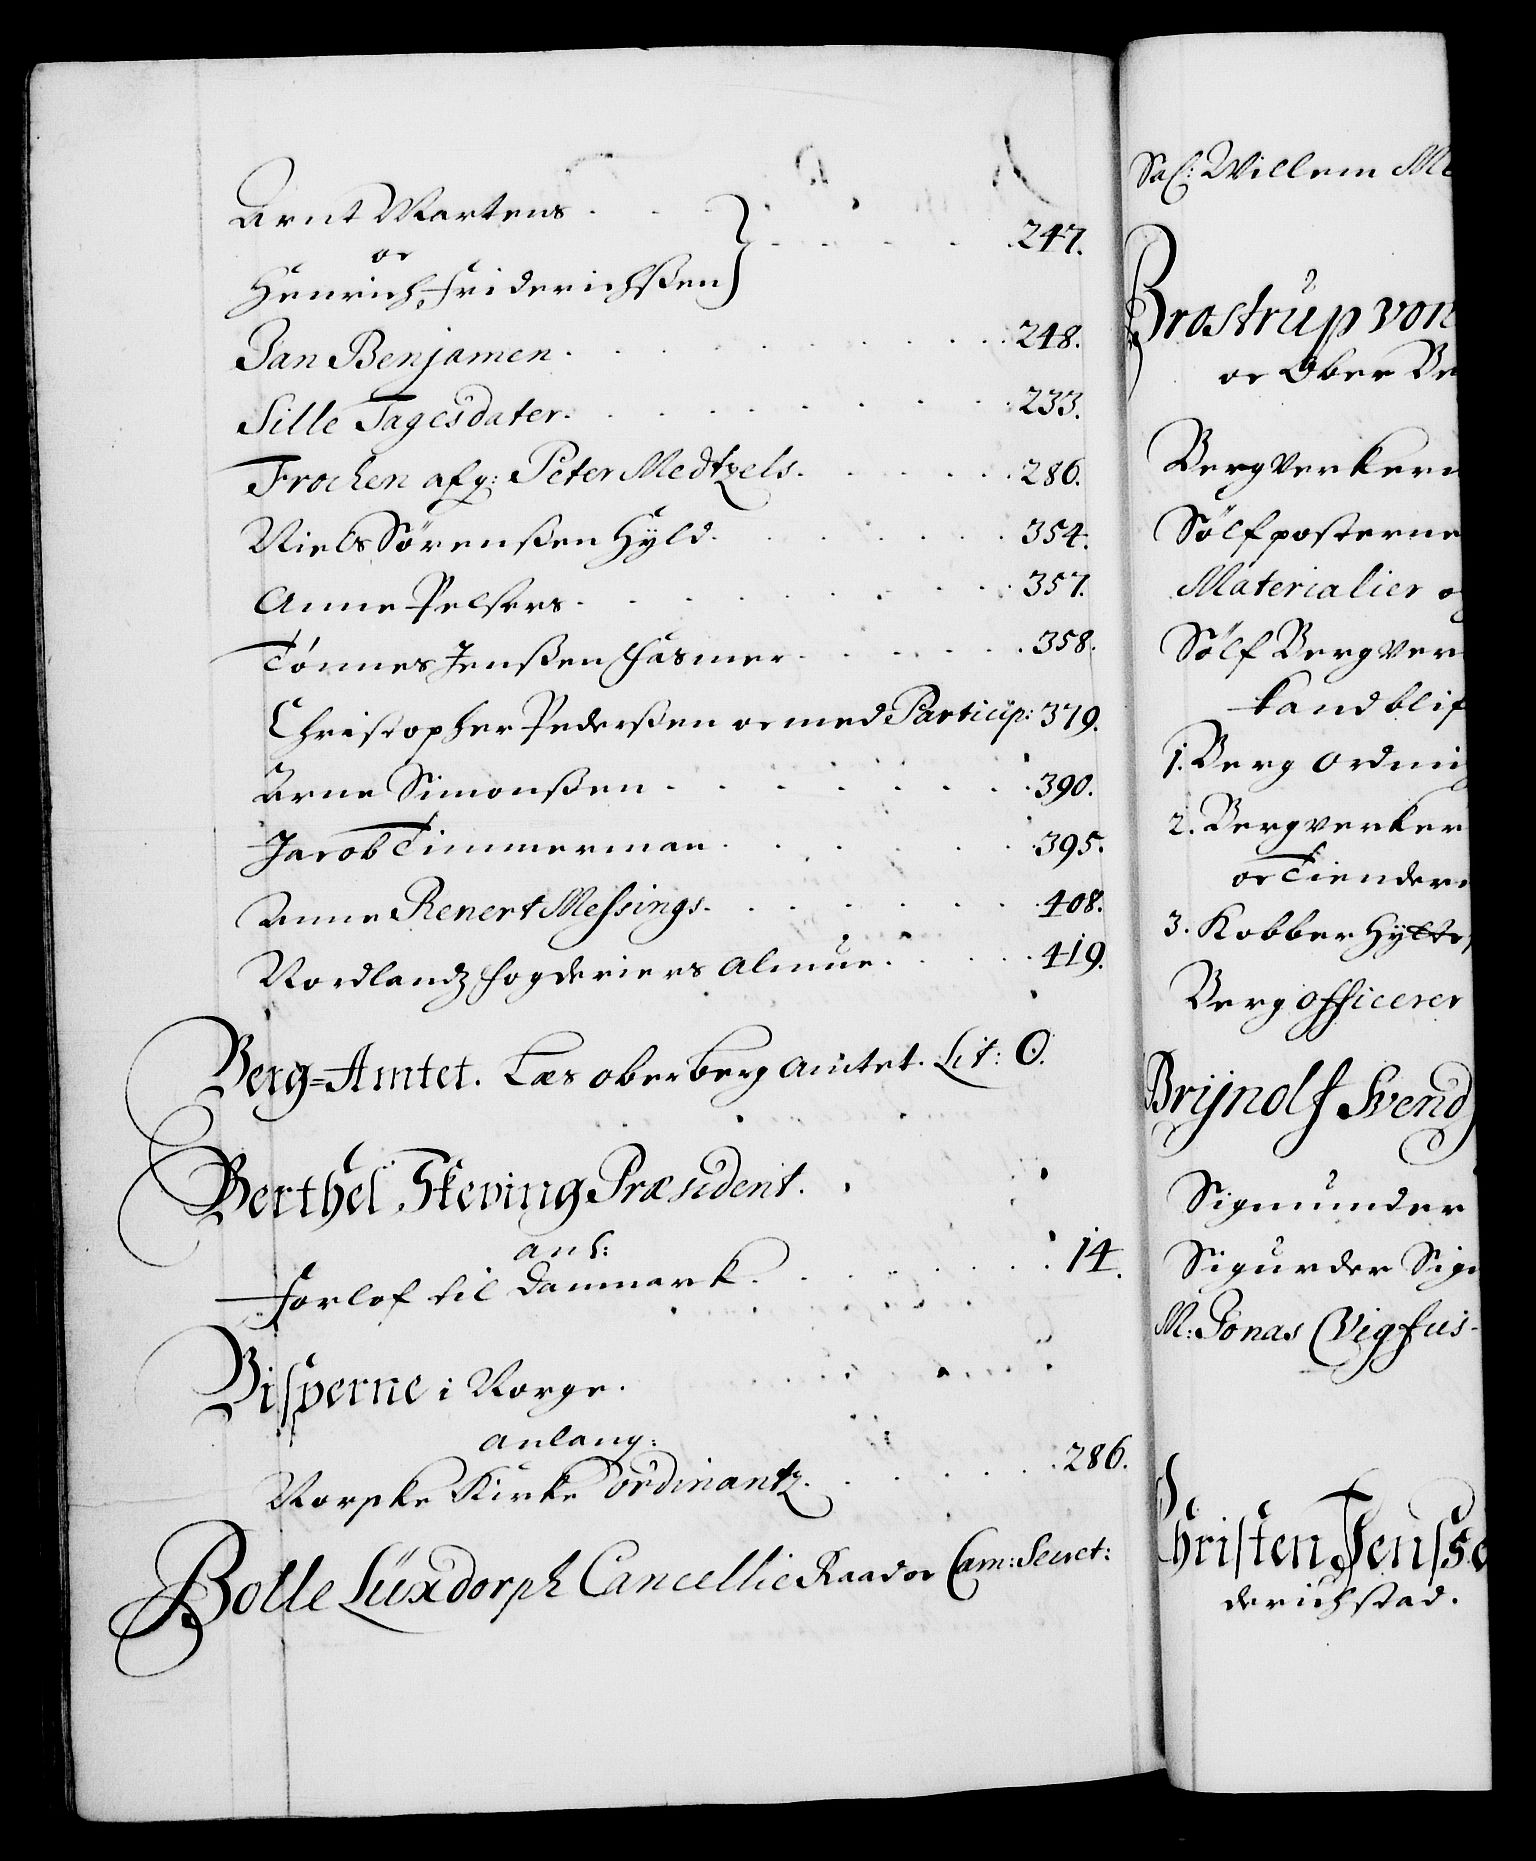 Arnt Martens . . . 247.
oc
Henrich Friderichßen
Jan Benjamen. 248.
Sille Tagesdater. 233.
Frochen afg: Peter Medtzels. 286.
Niels Sörenßen Hyld. 354.
Anne Pelsers. 357.
Tönnes Jenßen Hasmer 358.
Christopher Pederßen oc med Particip: 379.
Arne Simonßen 390.
Jacob Timmerman 395.
Anne Renert Messings. 408.
Nordlandz fogderiers Almue. 419.
Berg-Amtet. Læs ober berg amtet. Lit: O.
Berthel Steving Præsident.
anl:
Forlof til Danmark. 14.
Bisperne i Norge.
anlang:
Norske Kirke ordinantz. 286.
Bolle Lüxdorph Cancellie Raad oc Cam: Secret:
Sal: Willem Me
Brostrup von
oc Ober Be
Bergverkern
Sölfposterne
Materialier og
Sölf Bergver
kand blif
1. Berg ordnin
2. Bergverker
oc Tiendern
3. Kobber Hytte
Berg officerer
Brijnolf Svend
Sigmunder
Sigurder Sig
M: Jonas Vigfus-
Christen Jensse
derichstad.